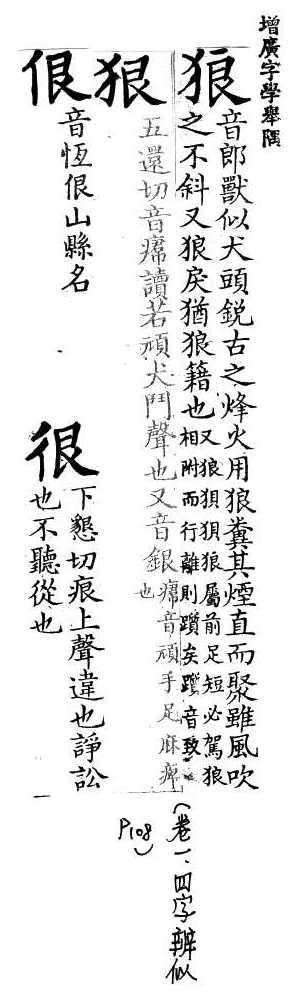 增廣字學舉隅
狼
音郎獸似犬頭銳古之烽火用狼糞其煙直而聚雖風吹
之不斜又狼戾猶狼籍也又狼狽狽狼屬前足短必駕狼
相附而行離則躓矣躓音致
狠
五還切音㾌讀若頑犬鬥聲也又音銀㾌音頑手足麻痺
也
佷
音恆佷山縣名
很
下懇切痕上聲違也諍訟
也不聽從也
(卷一、四字辨似
P108)